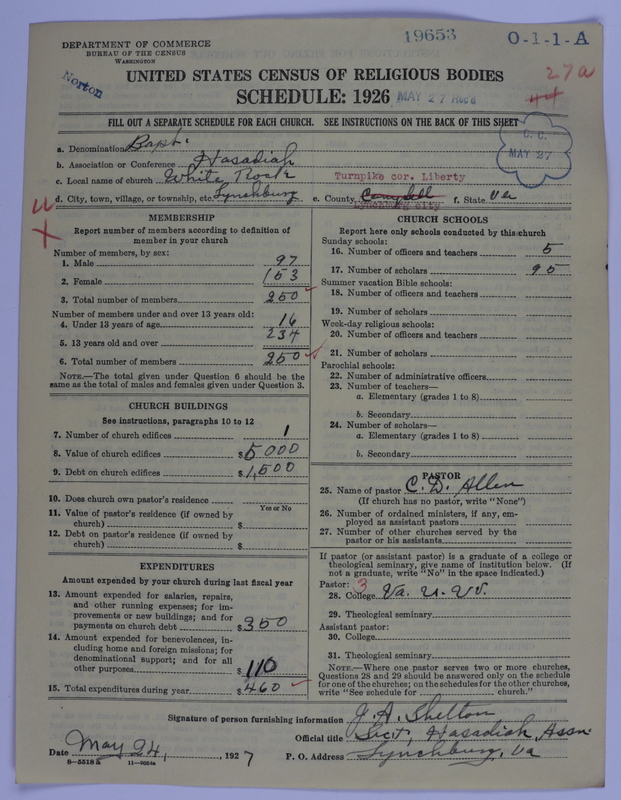 DEPARTMENT OF COMMERCE
BUREAU OF THE CENSUS
WASHINGTON
19653
O-1-1-A
Norton
UNITED STATES CENSUS OF RELIGIOUS BODIES
27a
SCHEDULE: 1926
MAY 27 Rec'd
44
FILL OUT A SEPARATE SCHEDULE FOR EACH CHURCH. SEE INSTRUCTIONS ON THE BACK OF THIS SHEET
C. C.
MAY 27
a. Denomination Bapt.
b. Association or Conference Hasadiah
c. Local name of church White Rock Turnpike cor. Liberty
d. City, town, village, or township, etc. Lynchburg e. County Campbell f. State Va
Lynchburg City
MEMBERSHIP
Report number of members according to definition of
member in your church
Number of members, by sex:
1. Male 97
2. Female 153
3. Total number of members 250
Number of members under and over 13 years old:
4. Under 13 years of age 16
5. 13 years old and over 234
6. Total number of members 250
NOTE.—The total given under Question 6 should be the
same as the total of males and females given under Question 3.
CHURCH BUILDINGS
See instructions, paragraphs 10 to 12
7. Number of church edifices 1
8. Value of church edifices $5000
9. Debt on church edifices $1,500
10. Does church own pastor's residence
Yes or No
11. Value of pastor's residence (if owned by
church) $
12. Debt on pastor's residence (if owned by
church) $
EXPENDITURES
Amount expended by your church during last fiscal year
13. Amount expended for salaries, repairs,
and other running expenses; for im-
provements or new buildings; and for
payments on church debt $350
14. Amount expended for benevolences, in-
cluding home and foreign missions; for
denominational support; and for all
other purposes $110
15. Total expenditures during year $460
CHURCH SCHOOLS
Report here only schools conducted by this church
Sunday schools:
16. Number of officers and teachers 5
17. Number of scholars 95
Summer vacation Bible schools:
18. Number of officers and teachers
19. Number of scholars
Week-day religious schools:
20. Number of officers and teachers
21. Number of scholars
Parochial schools:
22. Number of administrative officers
23. Number of teachers—
a. Elementary (grades 1 to 8)
b. Secondary
24. Number of scholars—
a. Elementary (grades 1 to 8)
b. Secondary
PASTOR
25. Name of pastor C. D. Allen
(If church has no pastor, write "None")
26. Number of ordained ministers, if any, em-
ployed as assistant pastors
27. Number of other churches served by the
pastor or his assistants
If pastor (or assistant pastor) is a graduate of a college or
theological seminary, give name of institution below. (If
not a graduate, write "No" in the space indicated.)
Pastor: 3
28. College Va. U.
29. Theological seminary
Assistant pastor:
30. College
31. Theological seminary
NOTE.—Where one pastor serves two or more churches,
Questions 28 and 29 should be answered only on the schedule
for one of the churches; on the schedules for the other churches,
write "See schedule for church."
Signature of person furnishing information J. A. Shelton
Official title Sect, Hasadiah, Assn.
Date May 24, , 1927 P. O. Address Lynchburg, Va
8-5518a 11-9054a